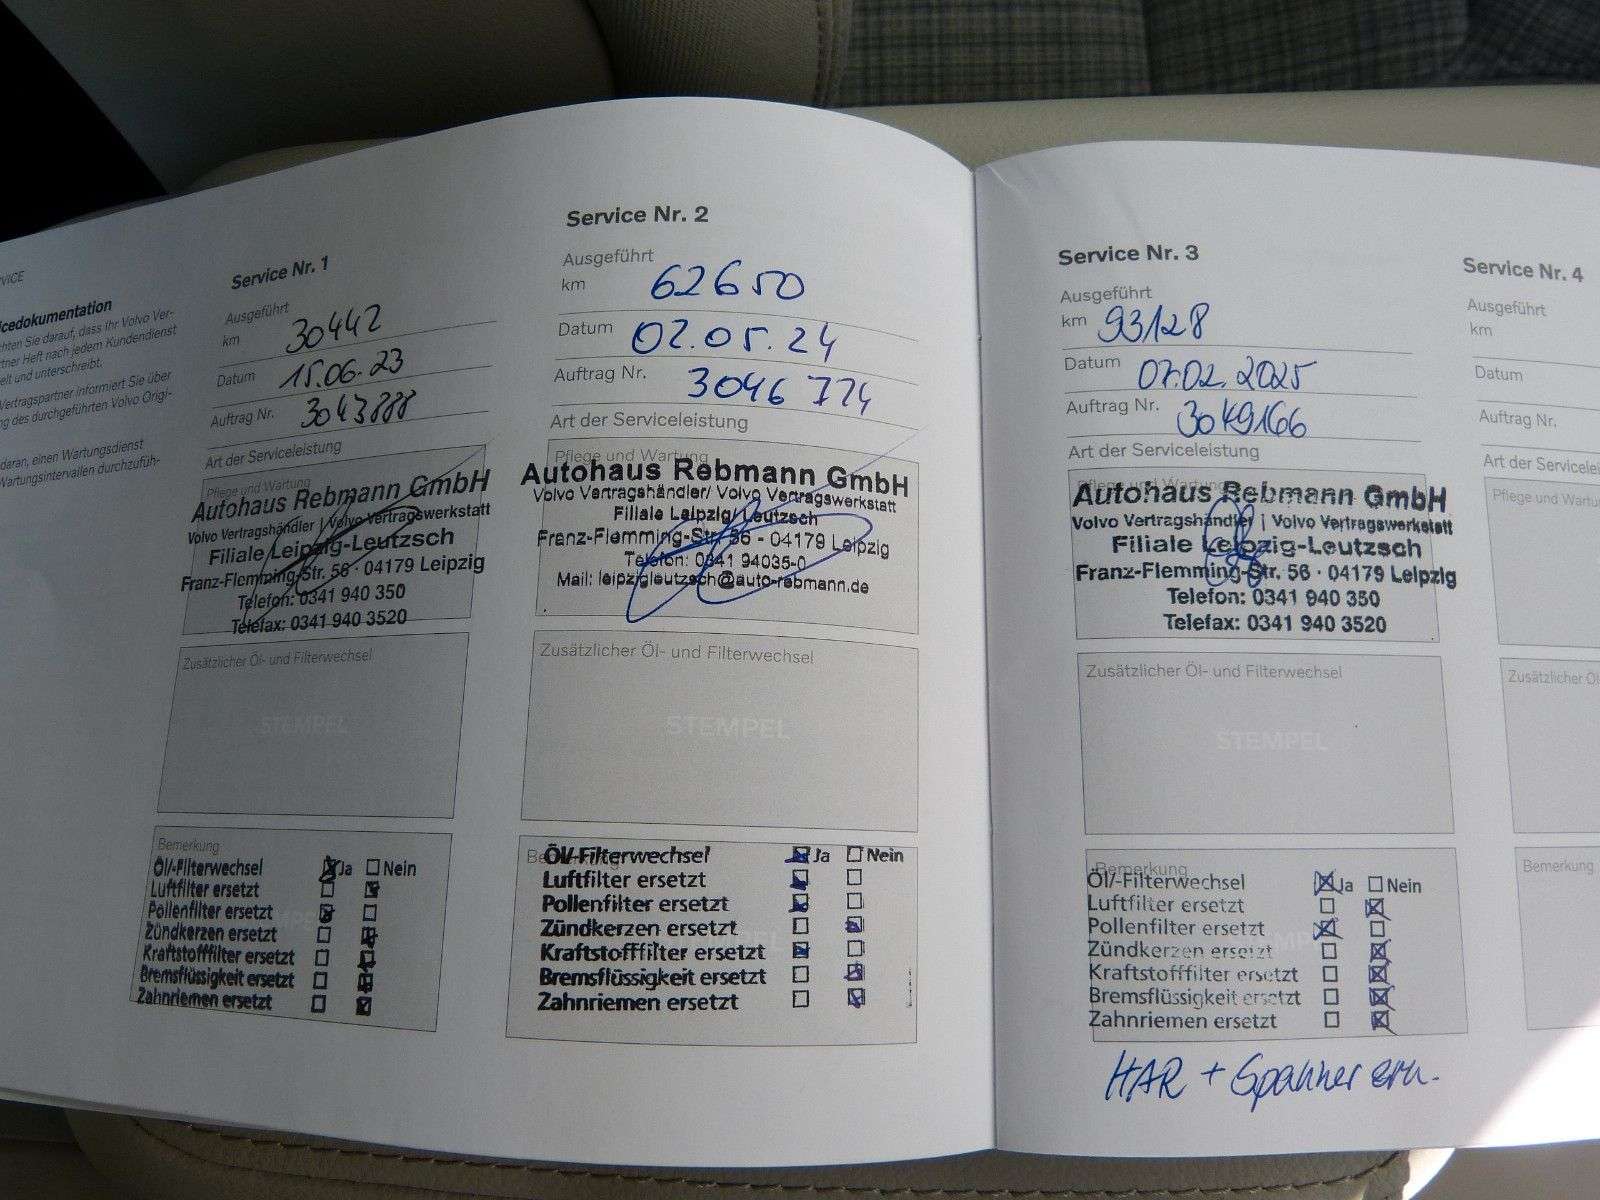 VICE
icedokumentation
chten Sie darauf, dass Ihr Volvo Ver-
rtner Heft nach jedem Kundendienst
elt und unterschreibt.
Vertragspartner informiert Sie über
ng des durchgeführten Volvo Origi-
daran, einen Wartungsdienst
Wartungsintervallen durchzufüh-
Service Nr. 1
Ausgeführt
km 30442
Datum 15.06.23
Auftrag Nr. 3043888
Art der Serviceleistung
Pflege und Wartung
Autohaus Rebmann GmbH
Volvo Vertragshändler | Volvo Vertragswerkstatt
Filiale Leipzig-Leutzsch
Franz-Flemming-Str. 56 · 04179 Leipzig
Telefon: 0341 940 350
Telefax: 0341 940 3520
Zusätzlicher Öl- und Filterwechsel
STEMPEL
Bemerkung
Öl/-Filterwechsel Ja Nein
Luftfilter ersetzt
Pollenfilter ersetzt
Zündkerzen ersetzt
Kraftstofffilter ersetzt
Bremsflüssigkeit ersetzt
Zahnriemen ersetzt
Service Nr. 2
Ausgeführt
km 62650
Datum 02.05.24
Auftrag Nr. 3046774
Art der Serviceleistung
Pflege und Wartung
Autohaus Rebmann GmbH
Volvo Vertragshändler/ Volvo Vertragswerkstatt
Filiale Leipzig/ Leutzsch
Franz-Flemming-Str. 56 - 04179 Leipzig
Telefon: 0341 94035-0
Mail: leipzigleutzsch@auto-rebmann.de
Zusätzlicher Öl- und Filterwechsel
STEMPEL
Öl/-Filterwechsel Ja Nein
Luftfilter ersetzt
Pollenfilter ersetzt
Zündkerzen ersetzt
Kraftstofffilter ersetzt
Bremsflüssigkeit ersetzt
Zahnriemen ersetzt
Service Nr. 3
Ausgeführt
km 93128
Datum 07.02.2025
Auftrag Nr. 3049166
Art der Serviceleistung
Pflege und Wartung
Autohaus Rebmann GmbH
Volvo Vertragshändler | Volvo Vertragswerkstatt
Filiale Leipzig-Leutzsch
Franz-Flemming-Str. 56 · 04179 Leipzig
Telefon: 0341 940 350
Telefax: 0341 940 3520
Zusätzlicher Öl- und Filterwechsel
STEMPEL
Bemerkung
Öl/-Filterwechsel Ja Nein
Luftfilter ersetzt
Pollenfilter ersetzt
Zündkerzen ersetzt
Kraftstofffilter ersetzt
Bremsflüssigkeit ersetzt
Zahnriemen ersetzt
HAR + Spanner ern.
Service Nr. 4
Ausgeführt
km
Datum
Auftrag Nr.
Art der Servicelei
Pflege und Wartu
Zusätzlicher Öl
Bemerkung